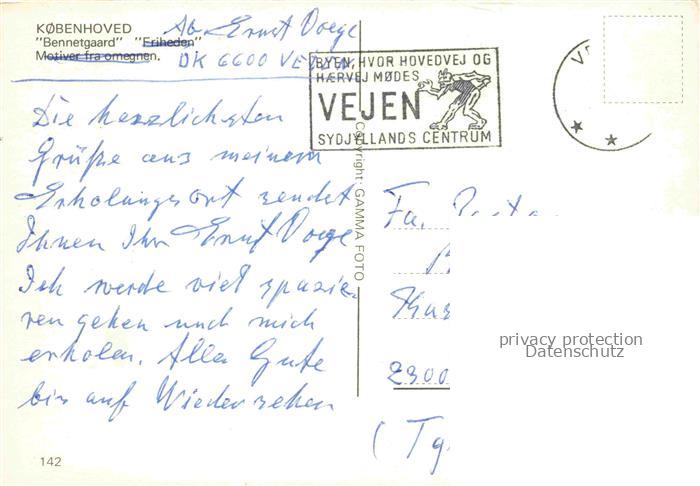 KØBENHOVED
"Bennetgaard" "Friheden"
Motiver fra omegnen.
Ab. Ernst Voege
DK 6600 VEJEN
BYEN, HVOR HOVEDVEJ OG
HÆRVEJ MØDES
VEJEN
SYDJYLLANDS CENTRUM
Die herzlichsten
Grüße aus meinem
Erholungsort sendet
Ihnen Ihr Ernst Voege
Ich werde viel spazie-
ren gehen und mich
erholen. Alles Gute
bis auf Wiedersehen
142
Copyright: GAMMA FOTO
Fa.
2300
(Tg
privacy protection
Datenschutz